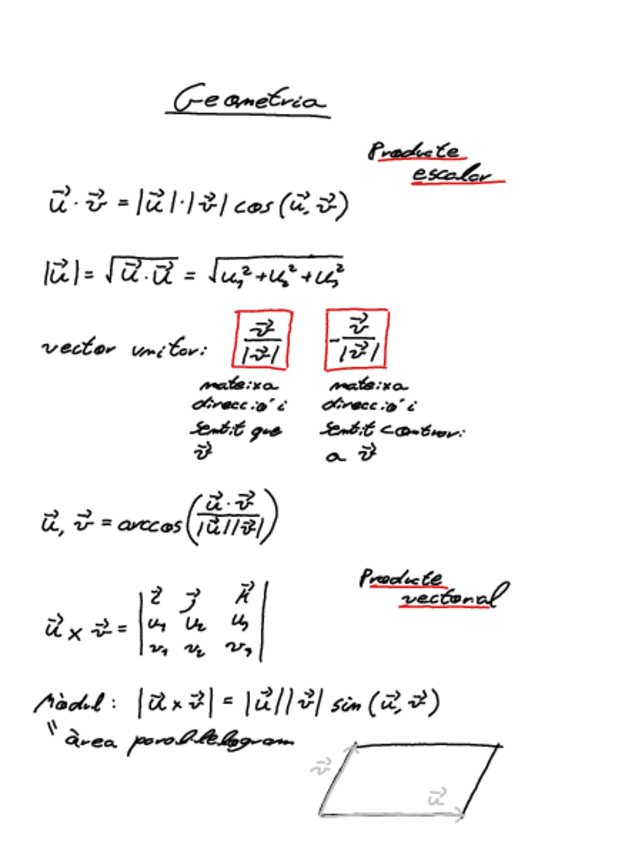 Geometria
Producte
escalar
u⃗ · v⃗ = |u⃗|·|v⃗| cos(u⃗, v⃗)
|u⃗| = √(u⃗·u⃗) = √(u₁²+u₂²+u₃²)
vector unitar: v⃗/|v⃗| -v⃗/|v⃗|
mateixa
direcció i
sentit que
v⃗
mateixa
direcció i
sentit contrari
a v⃗
u⃗, v⃗ = arccos(u⃗·v⃗/|u⃗||v⃗|)
Producte
vectorial
u⃗ × v⃗ = | i⃗ j⃗ k⃗ |
| u₁ u₂ u₃ |
| v₁ v₂ v₃ |
Mòdul: |u⃗ × v⃗| = |u⃗||v⃗| sin(u⃗, v⃗)
" àrea paral·lelogram
v⃗
u⃗